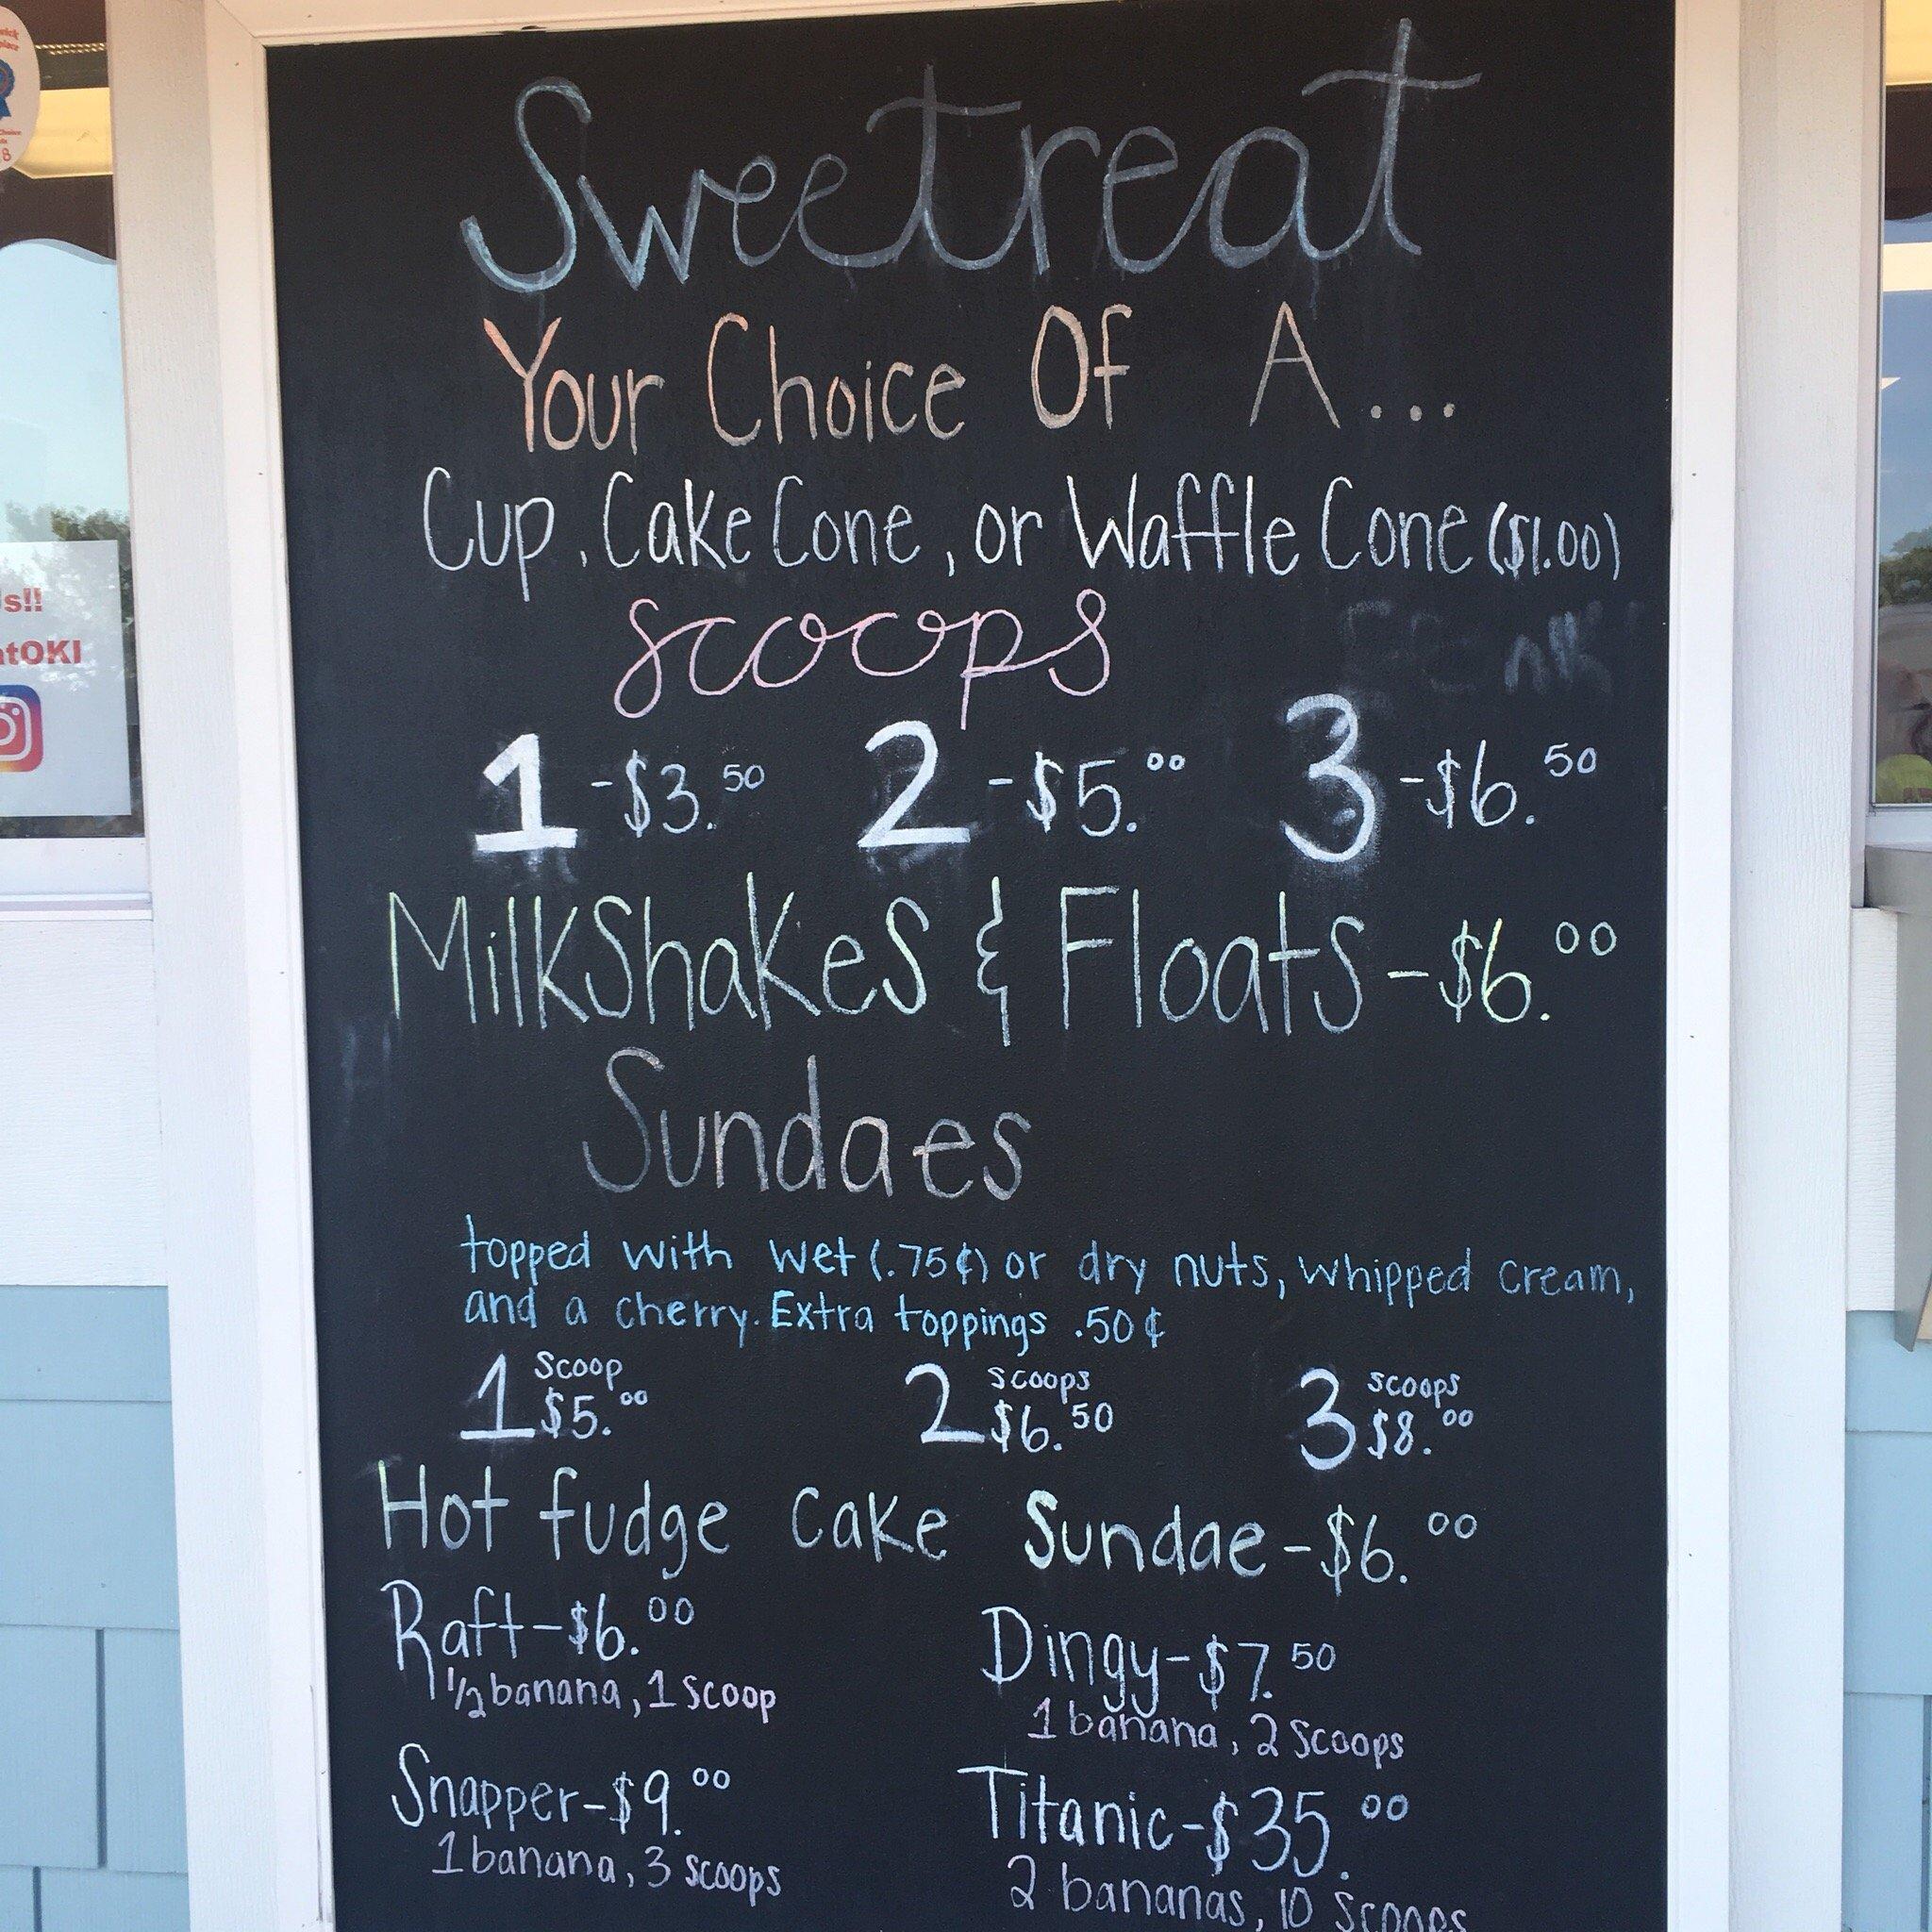 Sweetreat
Your Choice Of A...
Cup, Cake Cone, or Waffle Cone ($1.00)
scoops
1 -$3.50 2 -$5.00 3 -$6.50
MilkShakes & Floats - $6.00
Sundaes
topped with wet (.75¢) or dry nuts, whipped cream,
and a cherry. Extra toppings .50¢
1 Scoop $5.00 2 scoops $6.50 3 scoops $8.00
Hot fudge cake Sundae - $6.00
Raft - $6.00
1/2 banana, 1 scoop
Dingy - $7.50
1 banana, 2 scoops
Snapper - $9.00
1 banana, 3 scoops
Titanic - $35.00
2 bananas, 10 scoops
s!!
tOKI